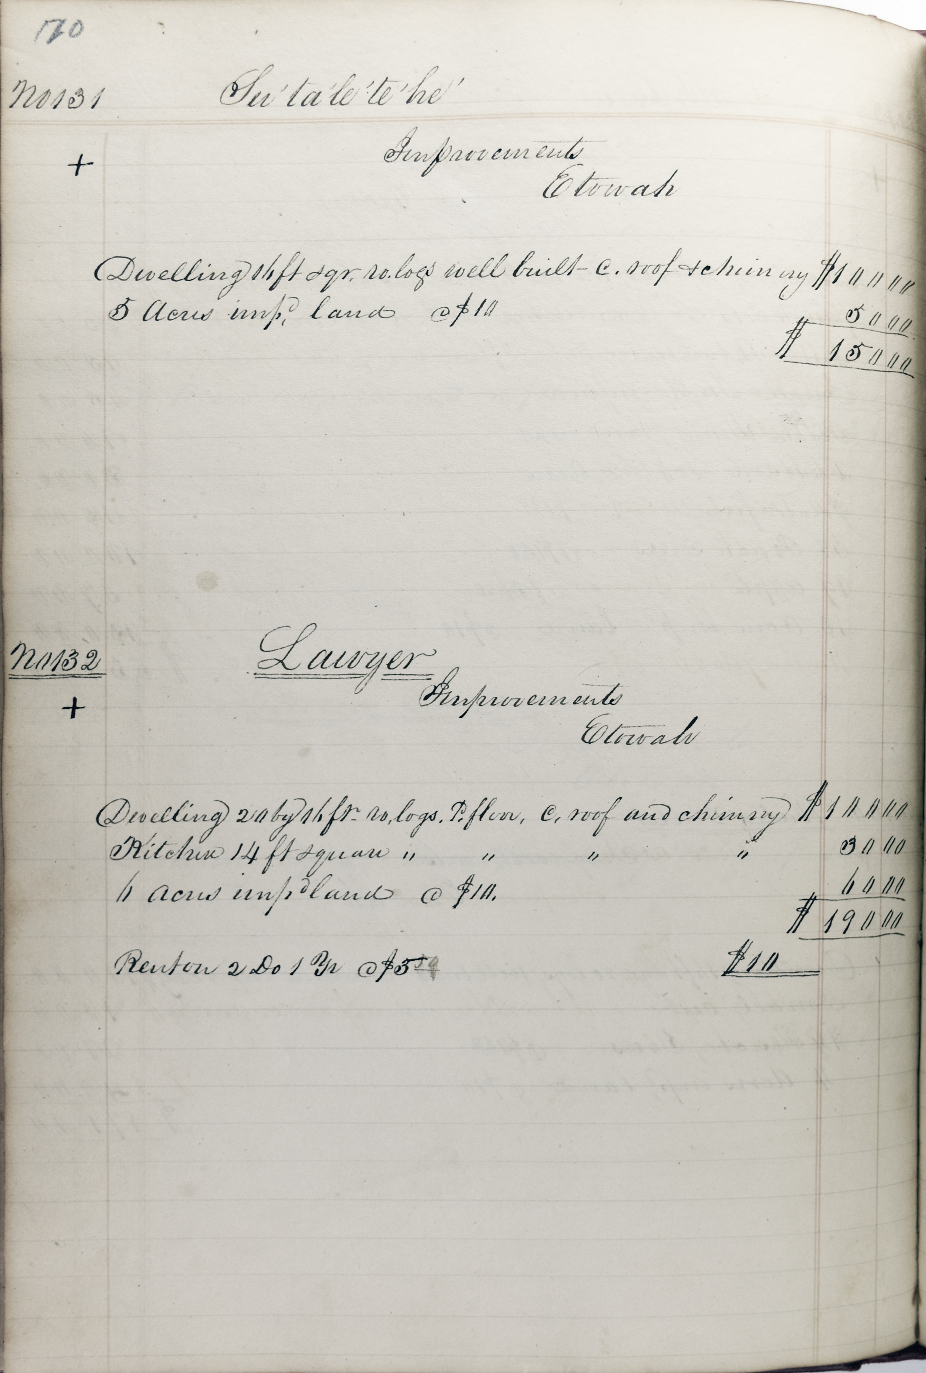 170
No 131 Su'ta'le'te'he'
+ Improvements
Etowah
Dwelling 16 ft sqr. ro. logs well built - C. roof & chimney $100 00
5 Acres imp.d land @ $10 50 00
$ 150 00
No 132 Lawyer
+ Improvements
Etowah
Dwelling 20 by 16 ft ro, logs. P. floor, C, roof and chimney $100 00
Kitchen 14 ft square " " " " 30 00
6 Acres impd land @ $10. 60 00
$ 190 00
Rent on 2 Do 1 Yr @ $5 $10